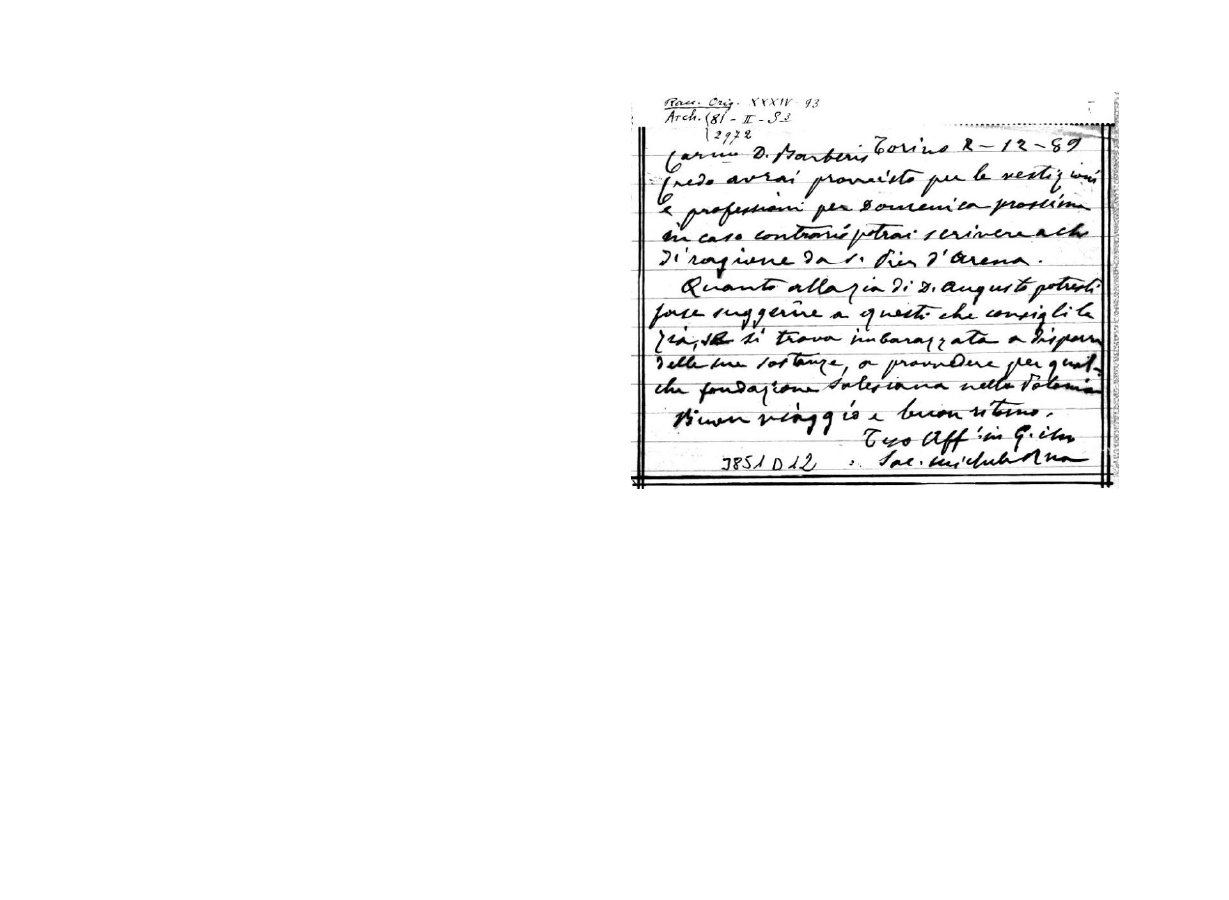 Racc. Orig. XXXIV - 93
Arch. (8) - II - S 3
2972
Carmo D. Barberis Torino 2 - 12 - 89
Credo avrai provvisto per le vestizioni
e professioni per Domenica prossima
in caso contrario potrai scrivere a chi
di ragione da S. Pier d'Arena.
Quanto alla zia di D. Augusto potresti
forse suggerire a questi che consigli la
zia, se si trova imbarazzata a disporre
delle sue sostanze, a provvedere per qual-
che fondazione Salesiana nella Polonia
Buon viaggio e buon ritorno.
Tuo Aff. in G.
Sac. Michele Rua
3851 D 12